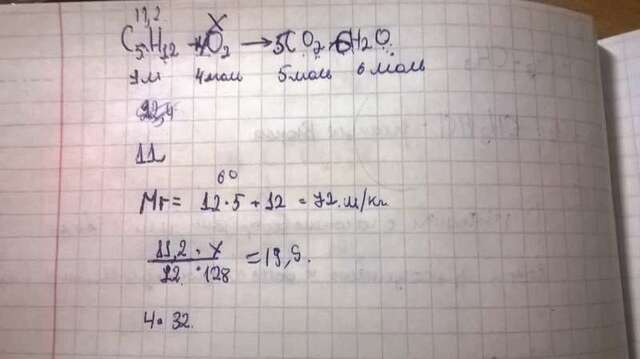 11,2 X
C5H12 + 4O2 → 5CO2 + 6H2O
1м 4моль 5моль 6 моль
22,4
11
60
Mr = 12·5+12 = 72.м/кг
11,2 · X
72 · 128 = 19,9.
4· 32.